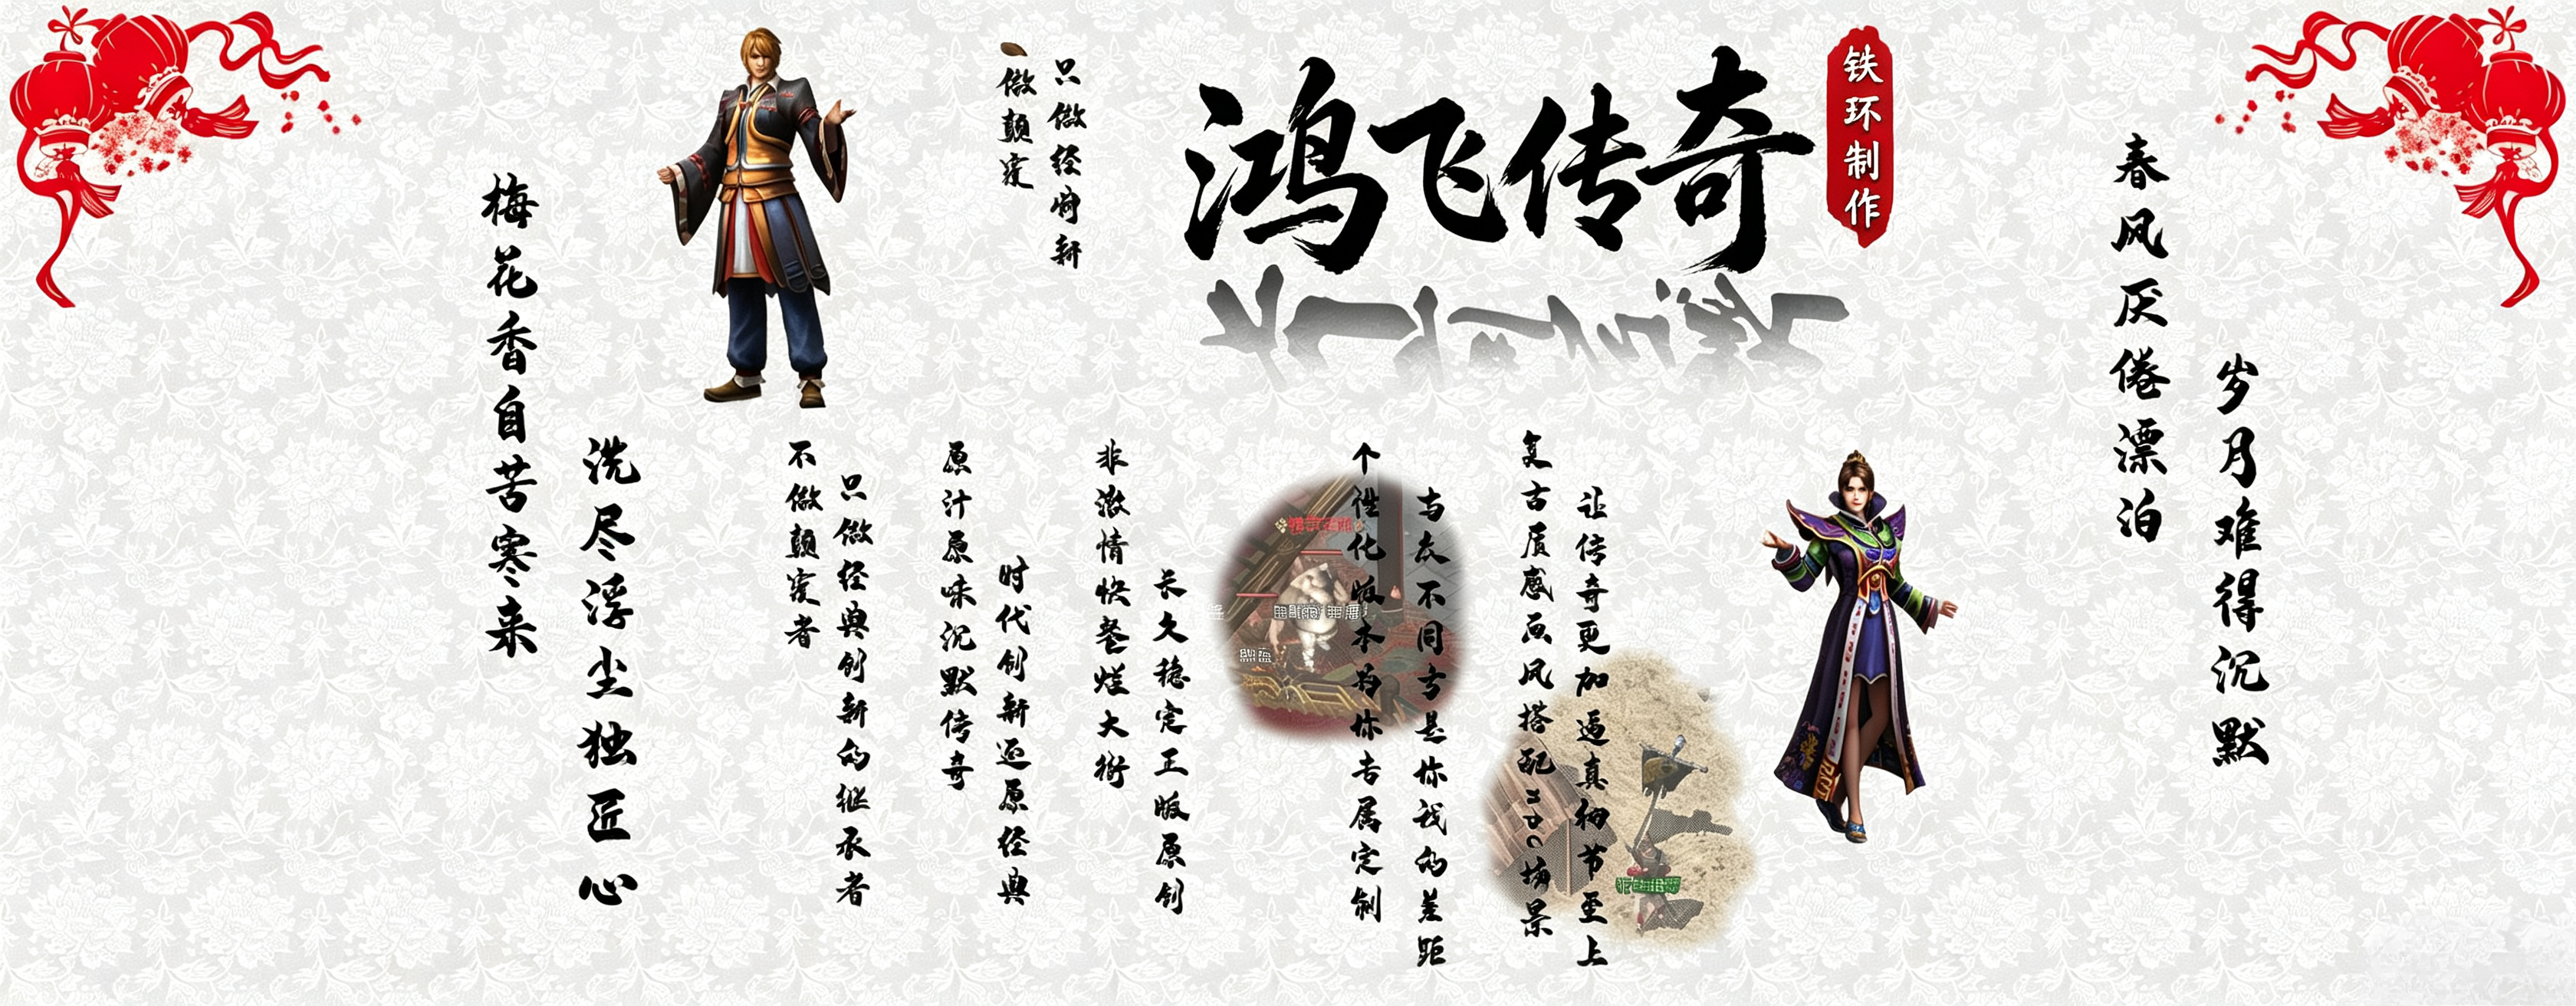 鸿飞传奇
铁环制作
春风厌倦漂泊
岁月难得沉默
梅花香自苦寒来
洗尽浮尘独匠心
做颠
只做经 新
不做颠 者
只做经典创新的继承者
原汁原味沉默传奇
时代创新还原经典
非激情快餐烂大街
长久稳定正版原创
个性化版本为你专属定制
与众不同方是你我的差距
复古质感画风搭配npc场景
让传奇更加逼真细节至上